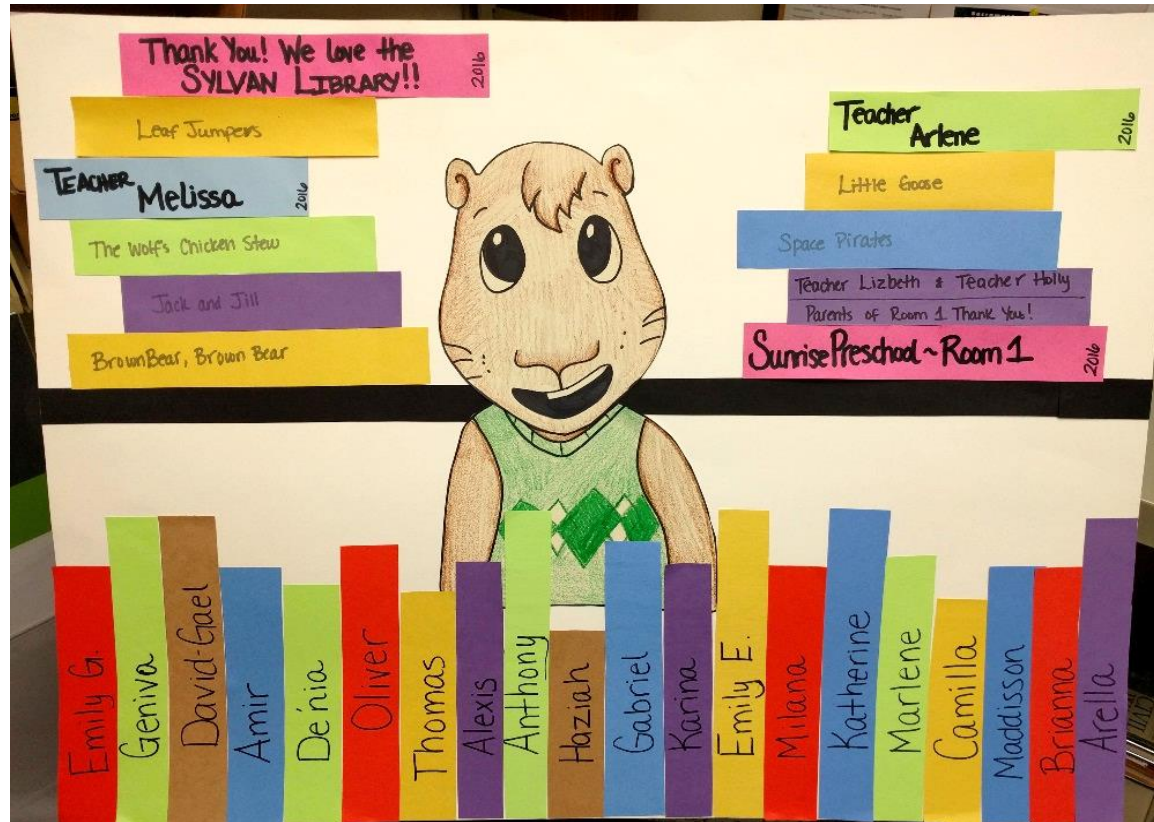 Thank You! We love the
SYLVAN LIBRARY!!
2016
Leaf Jumpers
TEACHER
Melissa
2016
The Wolf's Chicken Stew
Jack and Jill
Brown Bear, Brown Bear
Teacher
Arlene
2016
Little Goose
Space Pirates
Teacher Lizbeth & Teacher Holly
Parents of Room 1 Thank You!
Sunrise Preschool ~ Room 1
2016
Emily G.
Geniva
David-Gael
Amir
De'nia
Oliver
Thomas
Alexis
Anthony
Haziah
Gabriel
Karina
Emily E.
Milana
Katherine
Marlene
Camilla
Madisson
Brianna
Arella